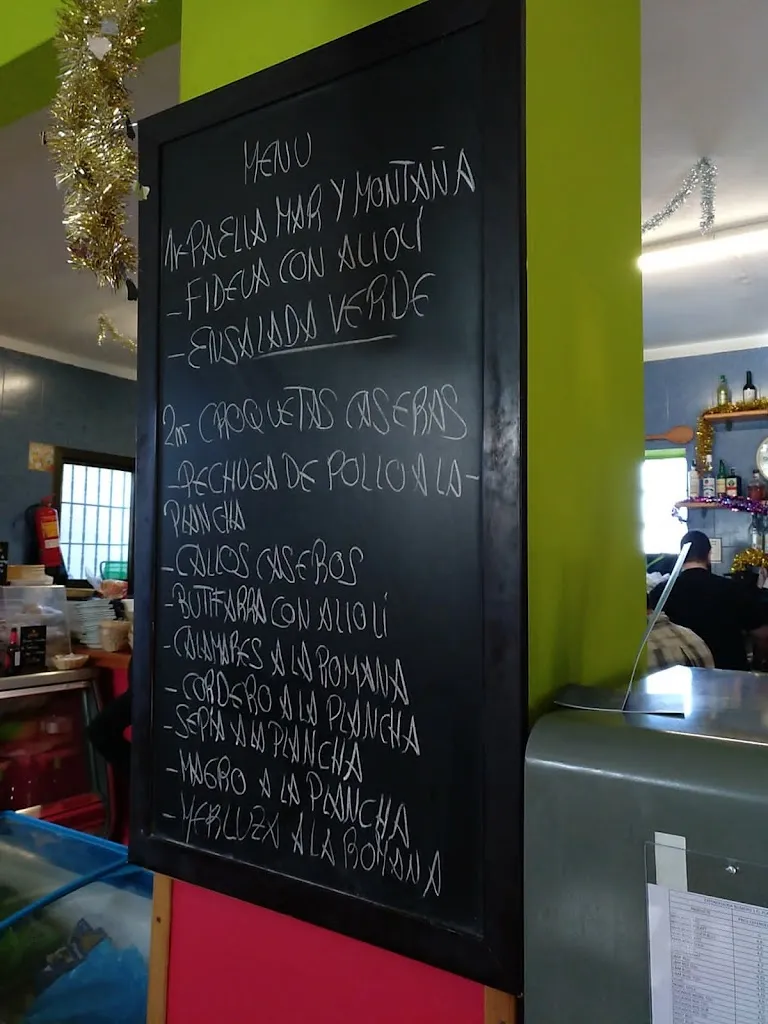 MENU
1r-PAELLA MAR Y MONTAÑA
-FIDEUA CON ALIOLÍ
-ENSALADA VERDE
2nt CROQUETAS CASERAS
-PECHUGA DE POLLO A LA-
PLANCHA
-CALLOS CASEROS
-BUTIFARRA CON ALIOLÍ
-CALAMARES A LA ROMANA
-CORDERO A LA PLANCHA
-SEPIA A LA PLANCHA
-MAGRO A LA PLANCHA
-MERLUZA A LA ROMANA